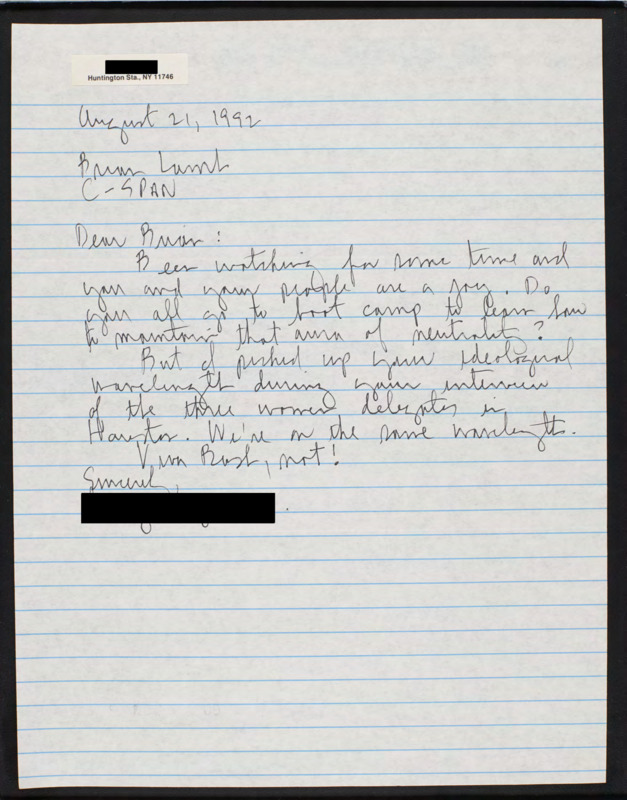 Huntington Sta., NY 11746
August 21, 1992
Brian Lamb
C-SPAN
Dear Brian:
Been watching for some time and
you and your people are a joy. Do
you all go to boot camp to learn how
to maintain that aura of neutrality?
But I picked up your ideological
wavelength during your interview
of the three women delegates in
Houston. We're on the same wavelength.
Viva Bush, not!
Sincerely,